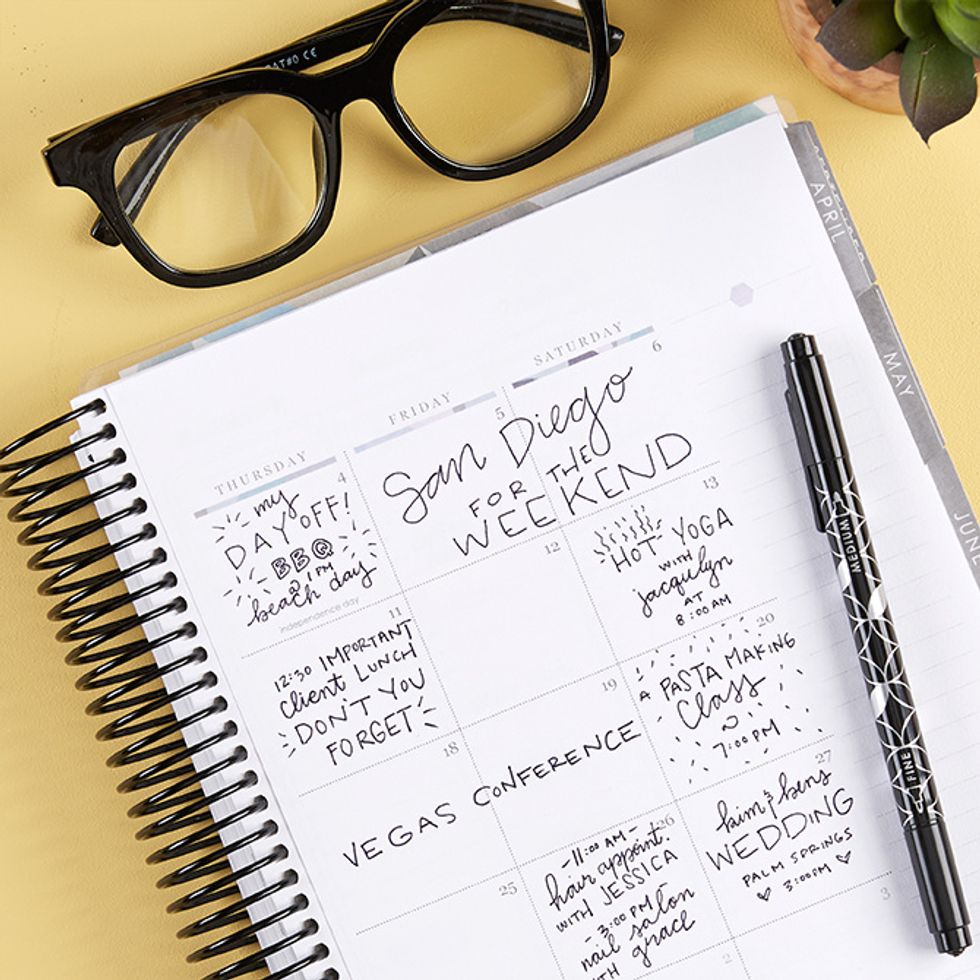 CE
APRIL
MAY
JUNE
THURSDAY
FRIDAY
SATURDAY
4
my
DAY OFF!
BBQ
@ 1 PM
beach day
independence day
5
6
San Diego
FOR THE
WEEKEND
11
12:30 IMPORTANT
client LUNCH
DON'T YOU
FORGET
12
13
HOT YOGA
WITH
jacquelyn
AT
8:00 AM
18
19
VEGAS CONFERENCE
20
A PASTA MAKING
Class
7:00 PM
25
26
-11:00 AM-
hair appoint.
WITH JESSICA
-3:00 PM-
nail salon
WITH grace
27
kim & bens
WEDDING
PALM SPRINGS
3:00PM
2
3
MEDIUM
FINE